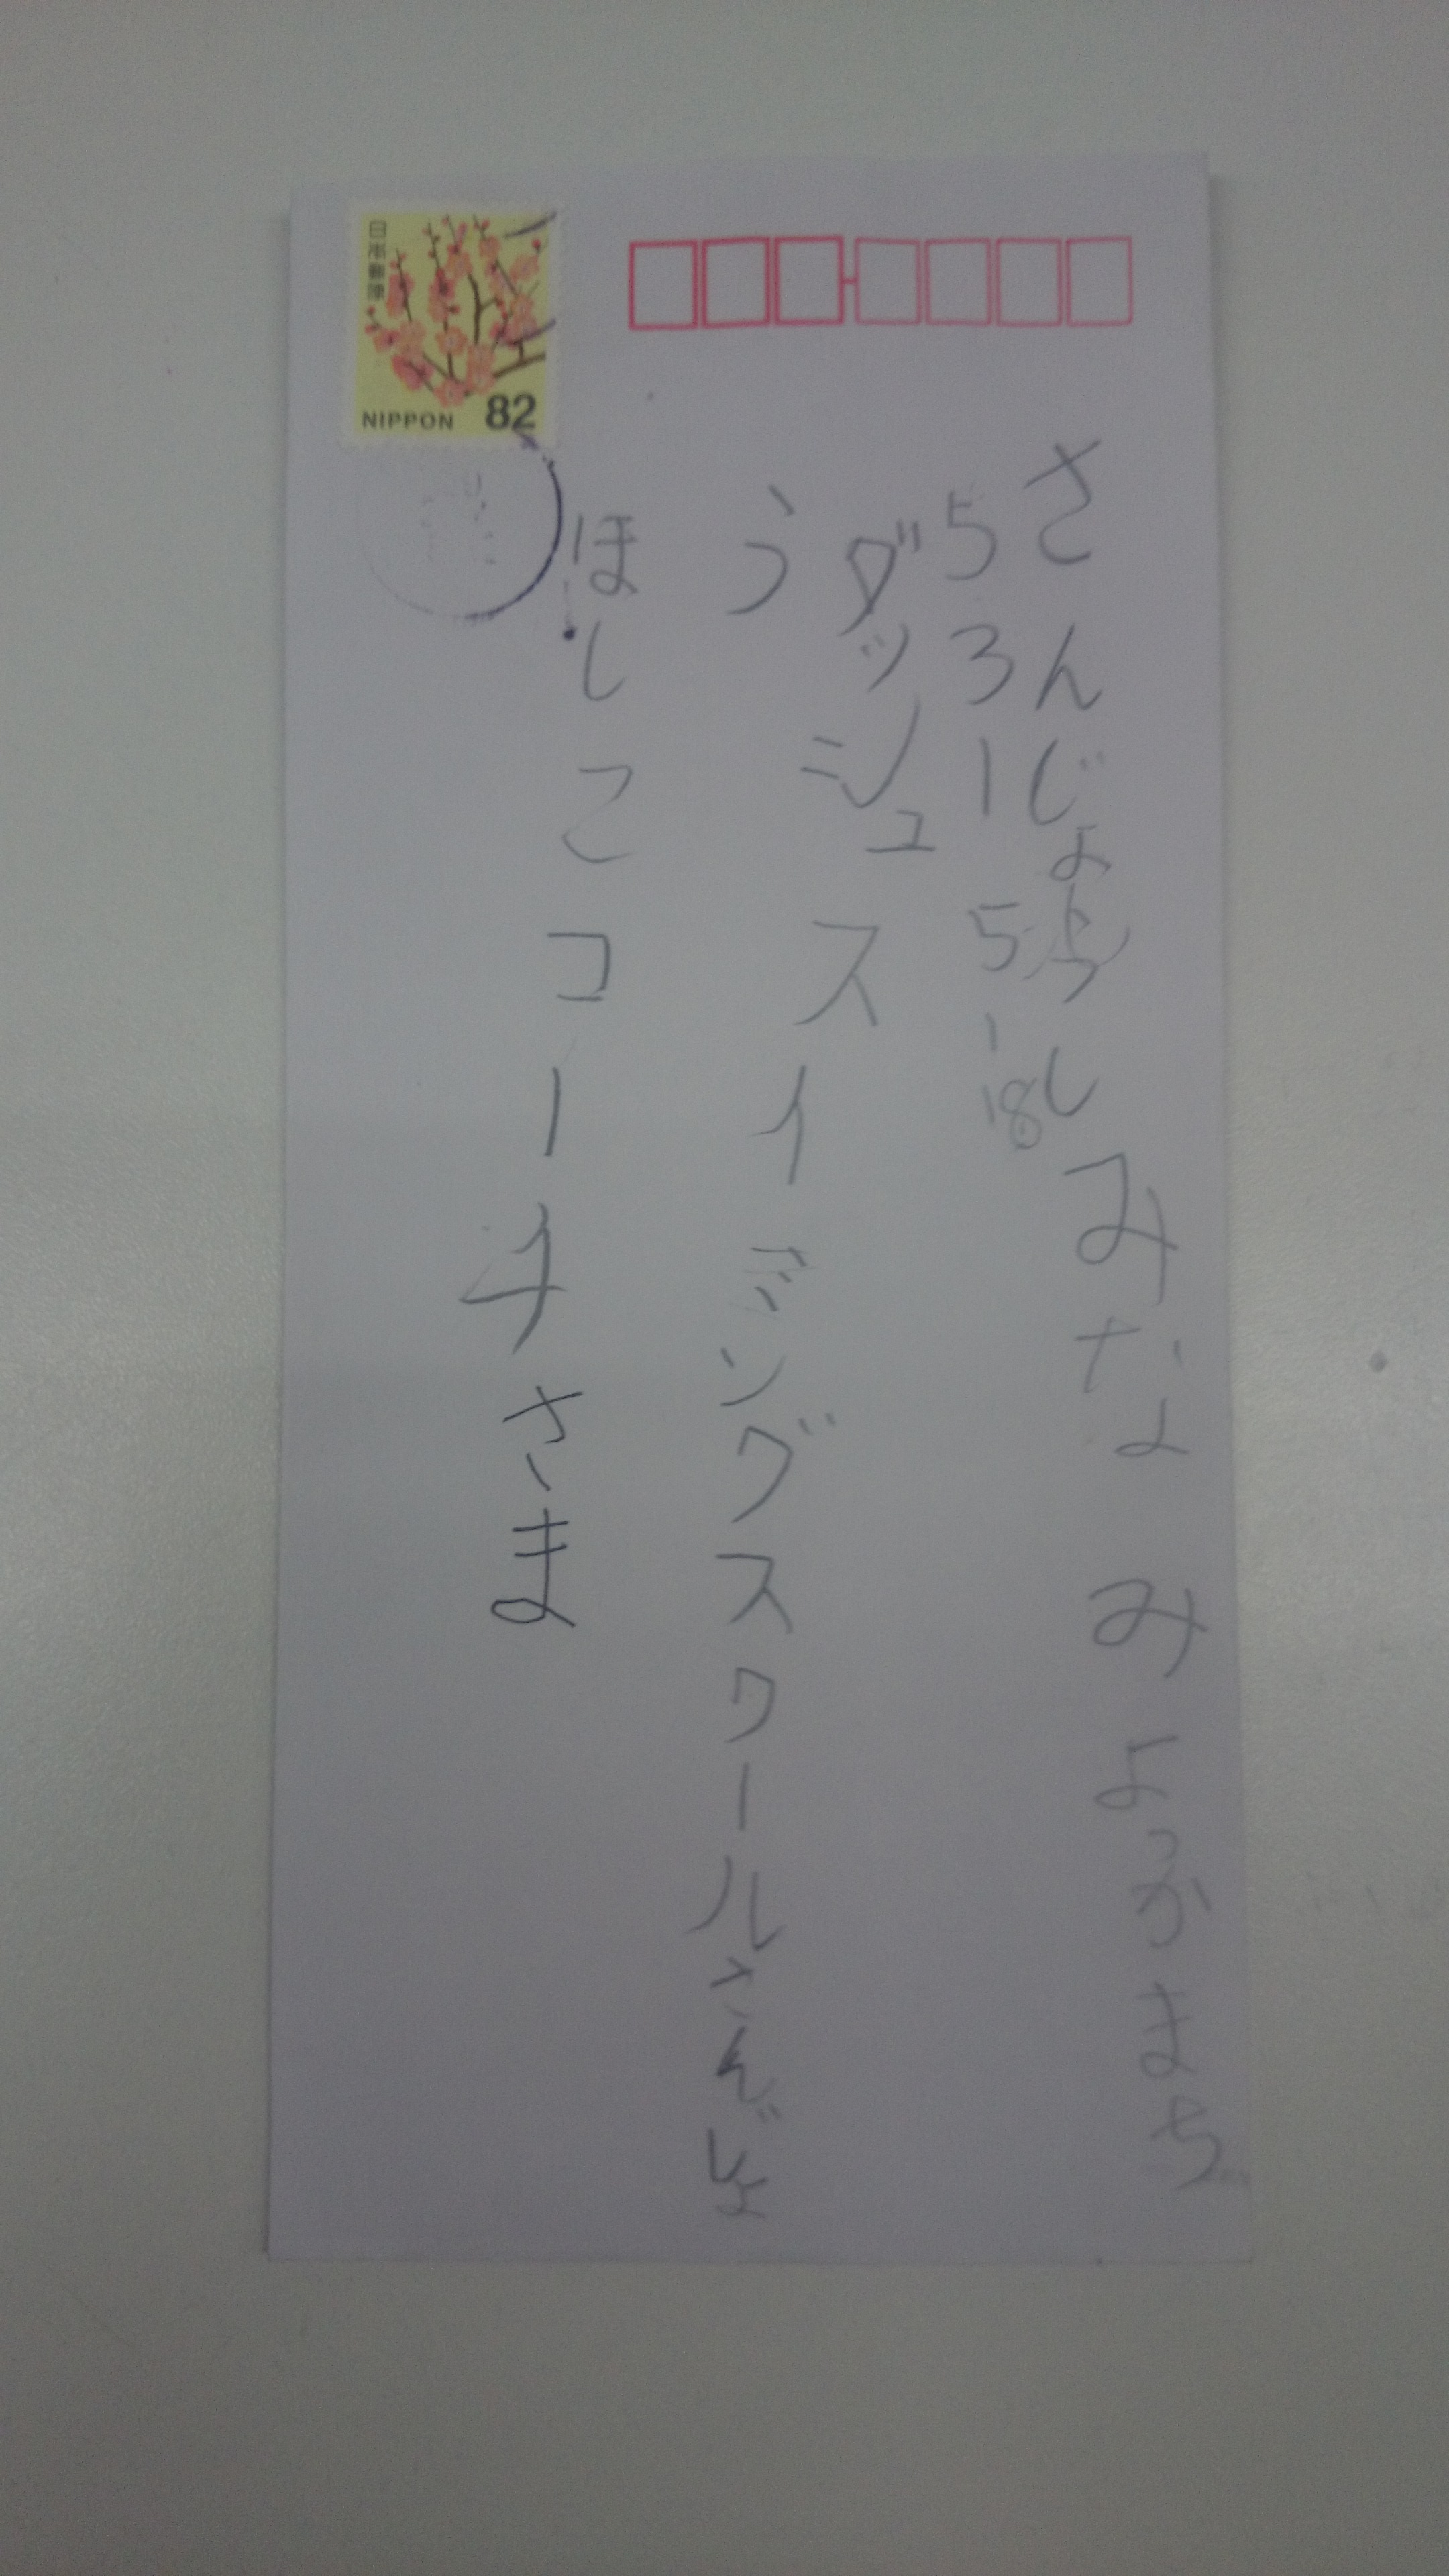 さんじょうし みなみ よっかまち
5ろ1 5-18
ダッシュスイミングスクールさんじょ
う
ほしこコーチさま
日本郵便
NIPPON 82